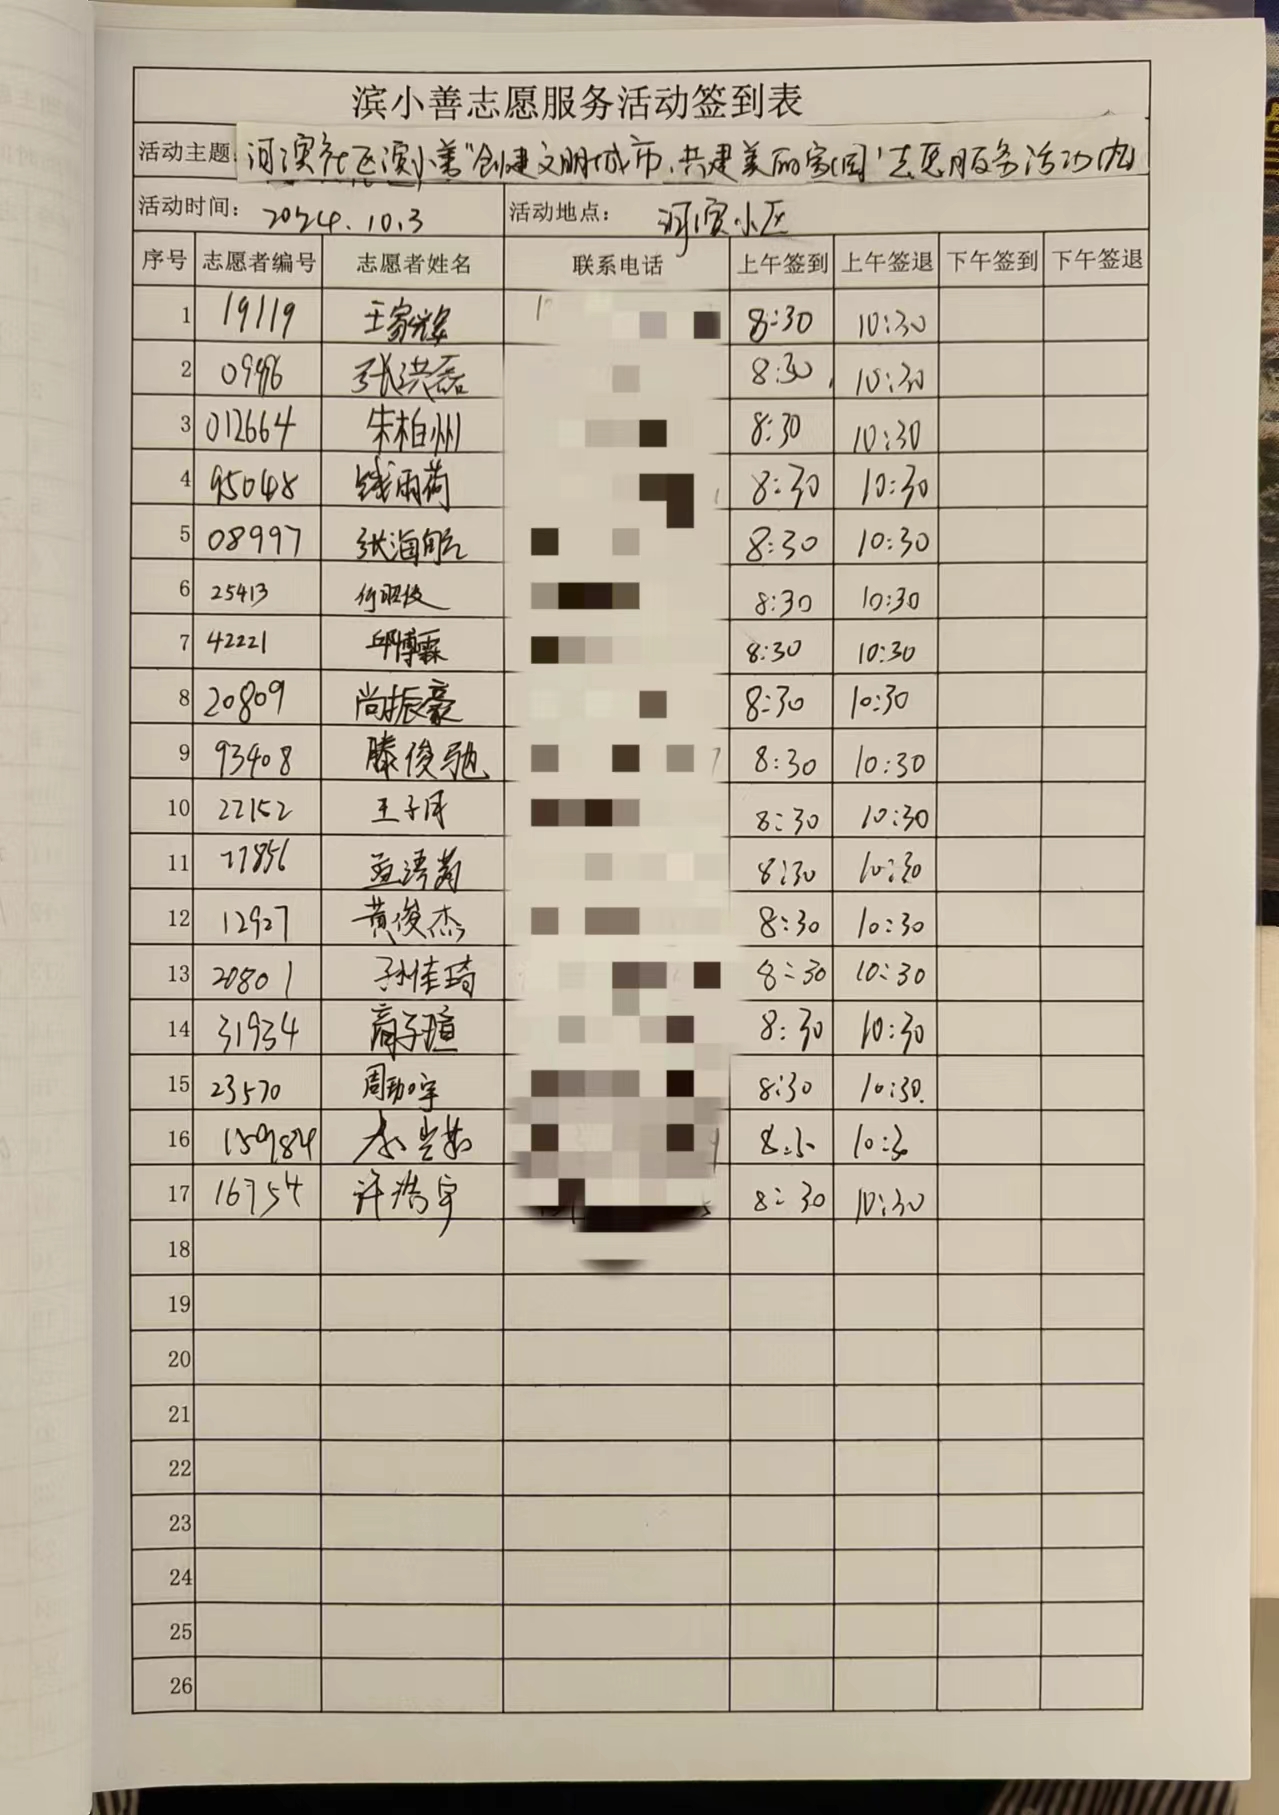 滨小善志愿服务活动签到表
活动主题: 河滨社区滨小善"创建文明城市,共建美丽家园"志愿服务活动
活动时间: 2024.10.3 活动地点: 河滨小区
序号 志愿者编号 志愿者姓名 联系电话 上午签到 上午签退 下午签到 下午签退
1 19119 王家辉 8:30 10:30
2 张洪磊 8:30 10:30
3 012664 朱柏州 8:30 10:30
4 95048 钱雨荷 8:30 10:30
5 08997 张海航 8:30 10:30
6 25413 8:30 10:30
7 42221 邱博霖 8:30 10:30
8 20809 尚振豪 8:30 10:30
9 93408 滕俊驰 8:30 10:30
10 22152 王子月 8:30 10:30
11 77856 8:30 10:30
12 12927 黄俊杰 8:30 10:30
13 20801 孙佳琦 8:30 10:30
14 31934 商子瑄 8:30 10:30
15 23570 周勃宇 8:30 10:30
16 159824 8:30 10:30
17 16754 许浩宇 8:30 10:30
18
19
20
21
22
23
24
25
26